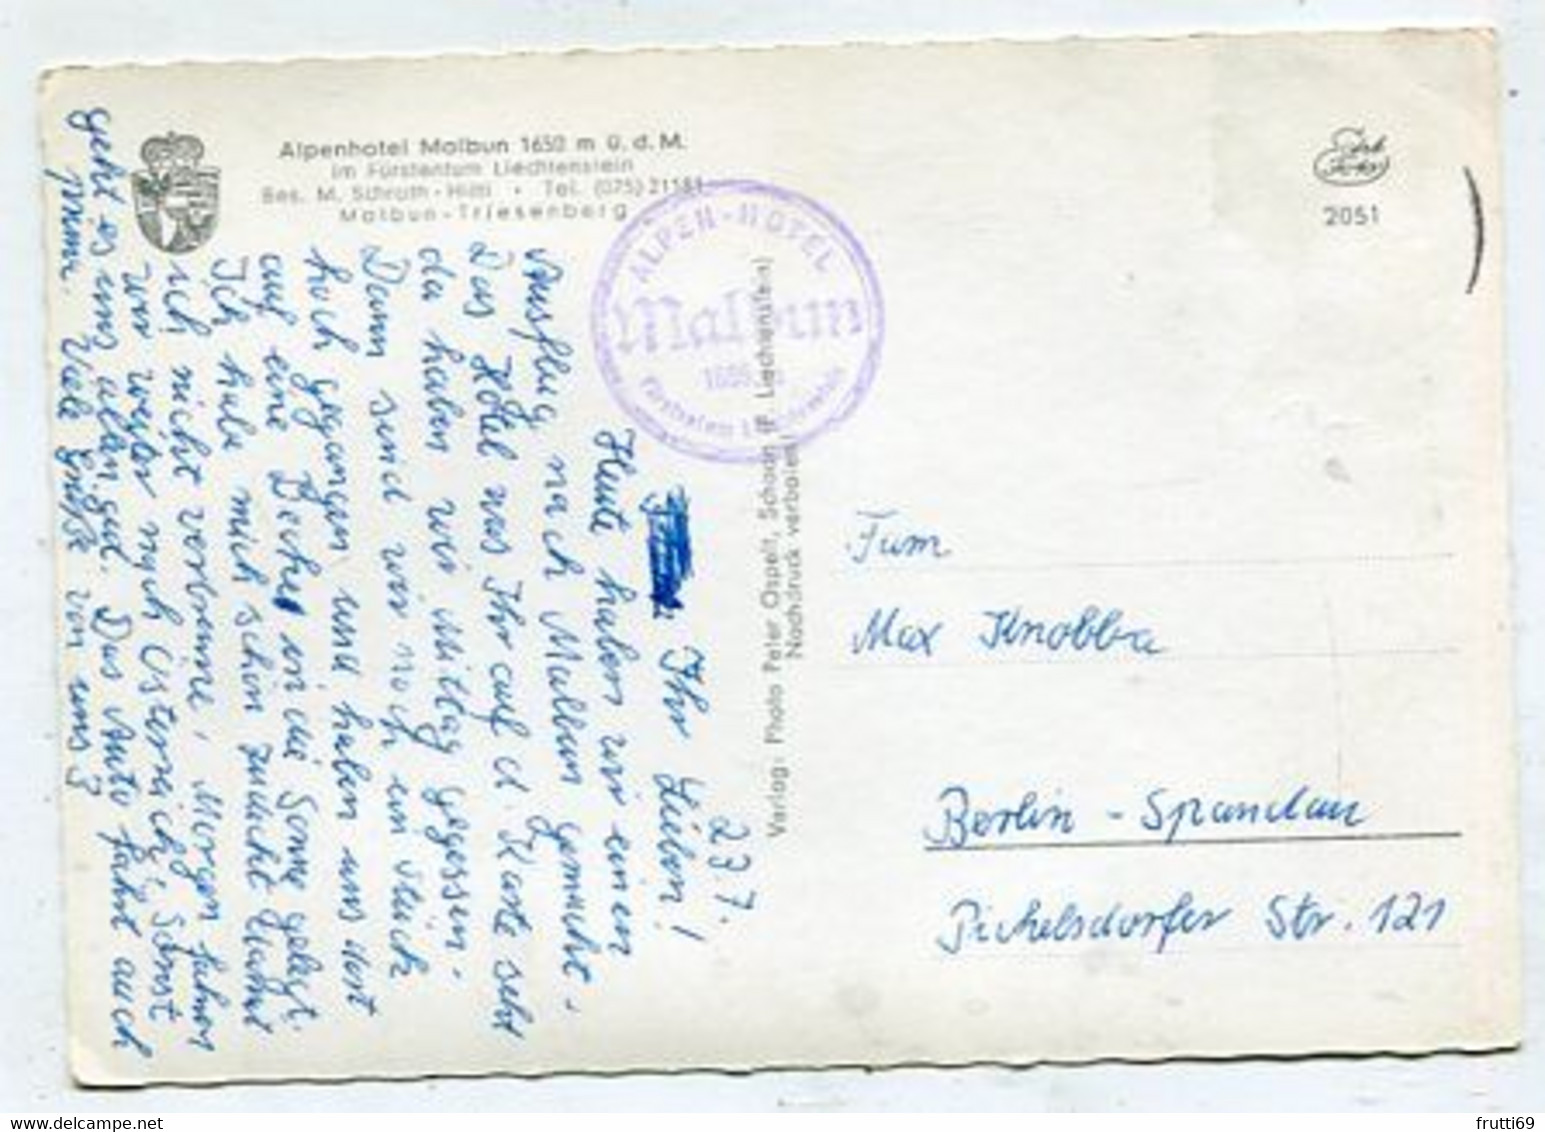 Alpenhotel Malbun 1650 m ü. d. M.
im Fürstentum Liechtenstein
Bes. M. Schroth-Hilti • Tel. (075) 21181
Malbun-Triesenberg
ALPEN-HOTEL
Malbun
Fürstentum Liechtenstein
2051
Verlag: Photo Peter Ospelt, Schaan (F. Liechtenstein)
Nachdruck verboten!
23 7.
Ihr Lieben!
Heute haben wir einen
Ausflug nach Malbun gemacht.
Das Hotel was Ihr auf d. Karte seht
da haben wir Mittag gegessen.
Dann sind wir noch ein Stück
hoch gegangen und haben uns dort
auf eine in die Sonne gelegt.
Ich habe mich schön damit
ich nicht verbrenne, Morgen fahren
wir weiter nach Österreich. Sonst
geht es uns allen gut. Das Auto fährt auch
prima. Viele Grüße von uns 3
Fam
Max Knobba
Berlin - Spandau
Pichelsdorfer Str. 121
frutti69